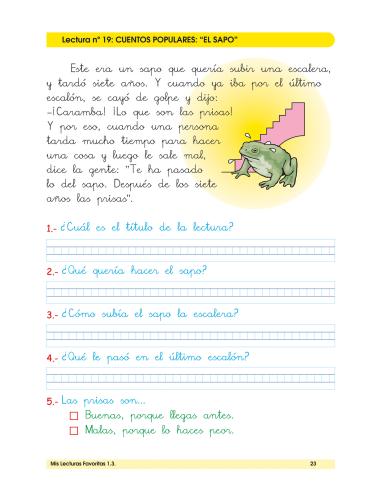 Lectura nº 19: CUENTOS POPULARES: "EL SAPO"
Este era un sapo que quería subir una escalera,
y tardó siete años. Y cuando ya iba por el último
escalón, se cayó de golpe y dijo:
-¡Caramba! ¡Lo que son las prisas!
Y por eso, cuando una persona
tarda mucho tiempo para hacer
una cosa y luego le sale mal,
dice la gente: "Te ha pasado
lo del sapo. Después de los siete
años las prisas".
1.- ¿Cuál es el título de la lectura?
2.- ¿Qué quería hacer el sapo?
3.- ¿Cómo subía el sapo la escalera?
4.- ¿Qué le pasó en el último escalón?
5.- Las prisas son...
Buenas, porque llegas antes.
Malas, porque lo haces peor.
Mis Lecturas Favoritas 1.3. 23